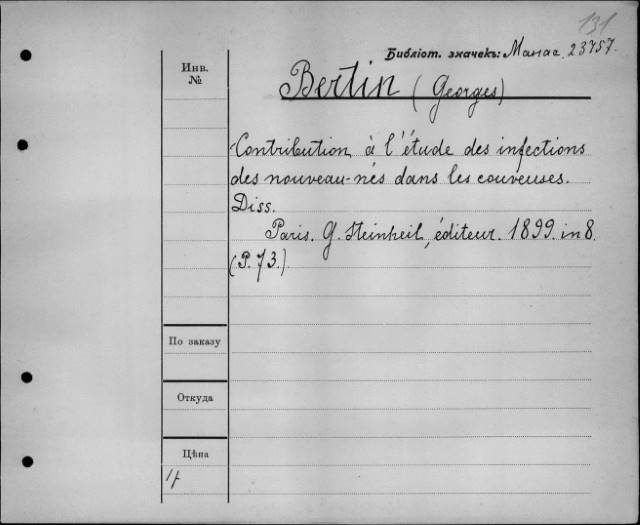 131
Библіот. значекъ: Манас. 23757.
Инв.
№
Bertin (Georges)
Contribution à l'étude des infections
des nouveau-nés dans les couveuses.
Diss.
Paris. G. Steinheil, éditeur. 1899. in 8.
(P. 73.)
По заказу
Откуда
Цѣна